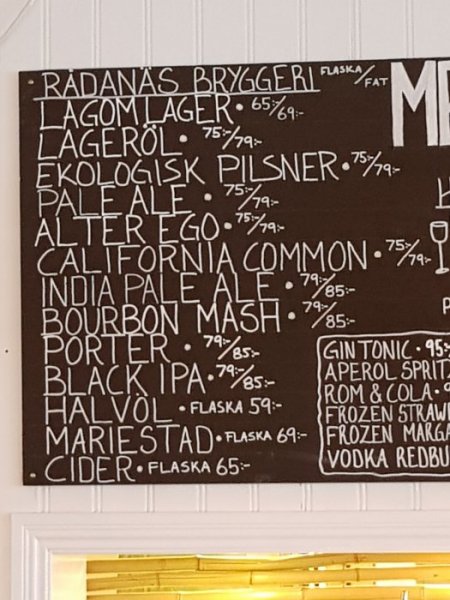 RÅDANÄS BRYGGERI FLASKA/FAT
LAGOM LAGER • 65:-/69:-
LAGERÖL • 75:-/79:-
EKOLOGISK PILSNER • 75:-/79:-
PALE ALE • 75:-/79:-
ALTER EGO • 75:-/79:-
CALIFORNIA COMMON • 75:-/79:-
INDIA PALE ALE • 79:-/85:-
BOURBON MASH • 79:-/85:-
PORTER • 79:-/85:-
BLACK IPA • 79:-/85:-
HALVÖL • FLASKA 59:-
MARIESTAD • FLASKA 69:-
CIDER • FLASKA 65:-
ME
GIN TONIC • 95:-
APEROL SPRITZ
ROM & COLA •
FROZEN STRAW
FROZEN MARGA
VODKA REDBU